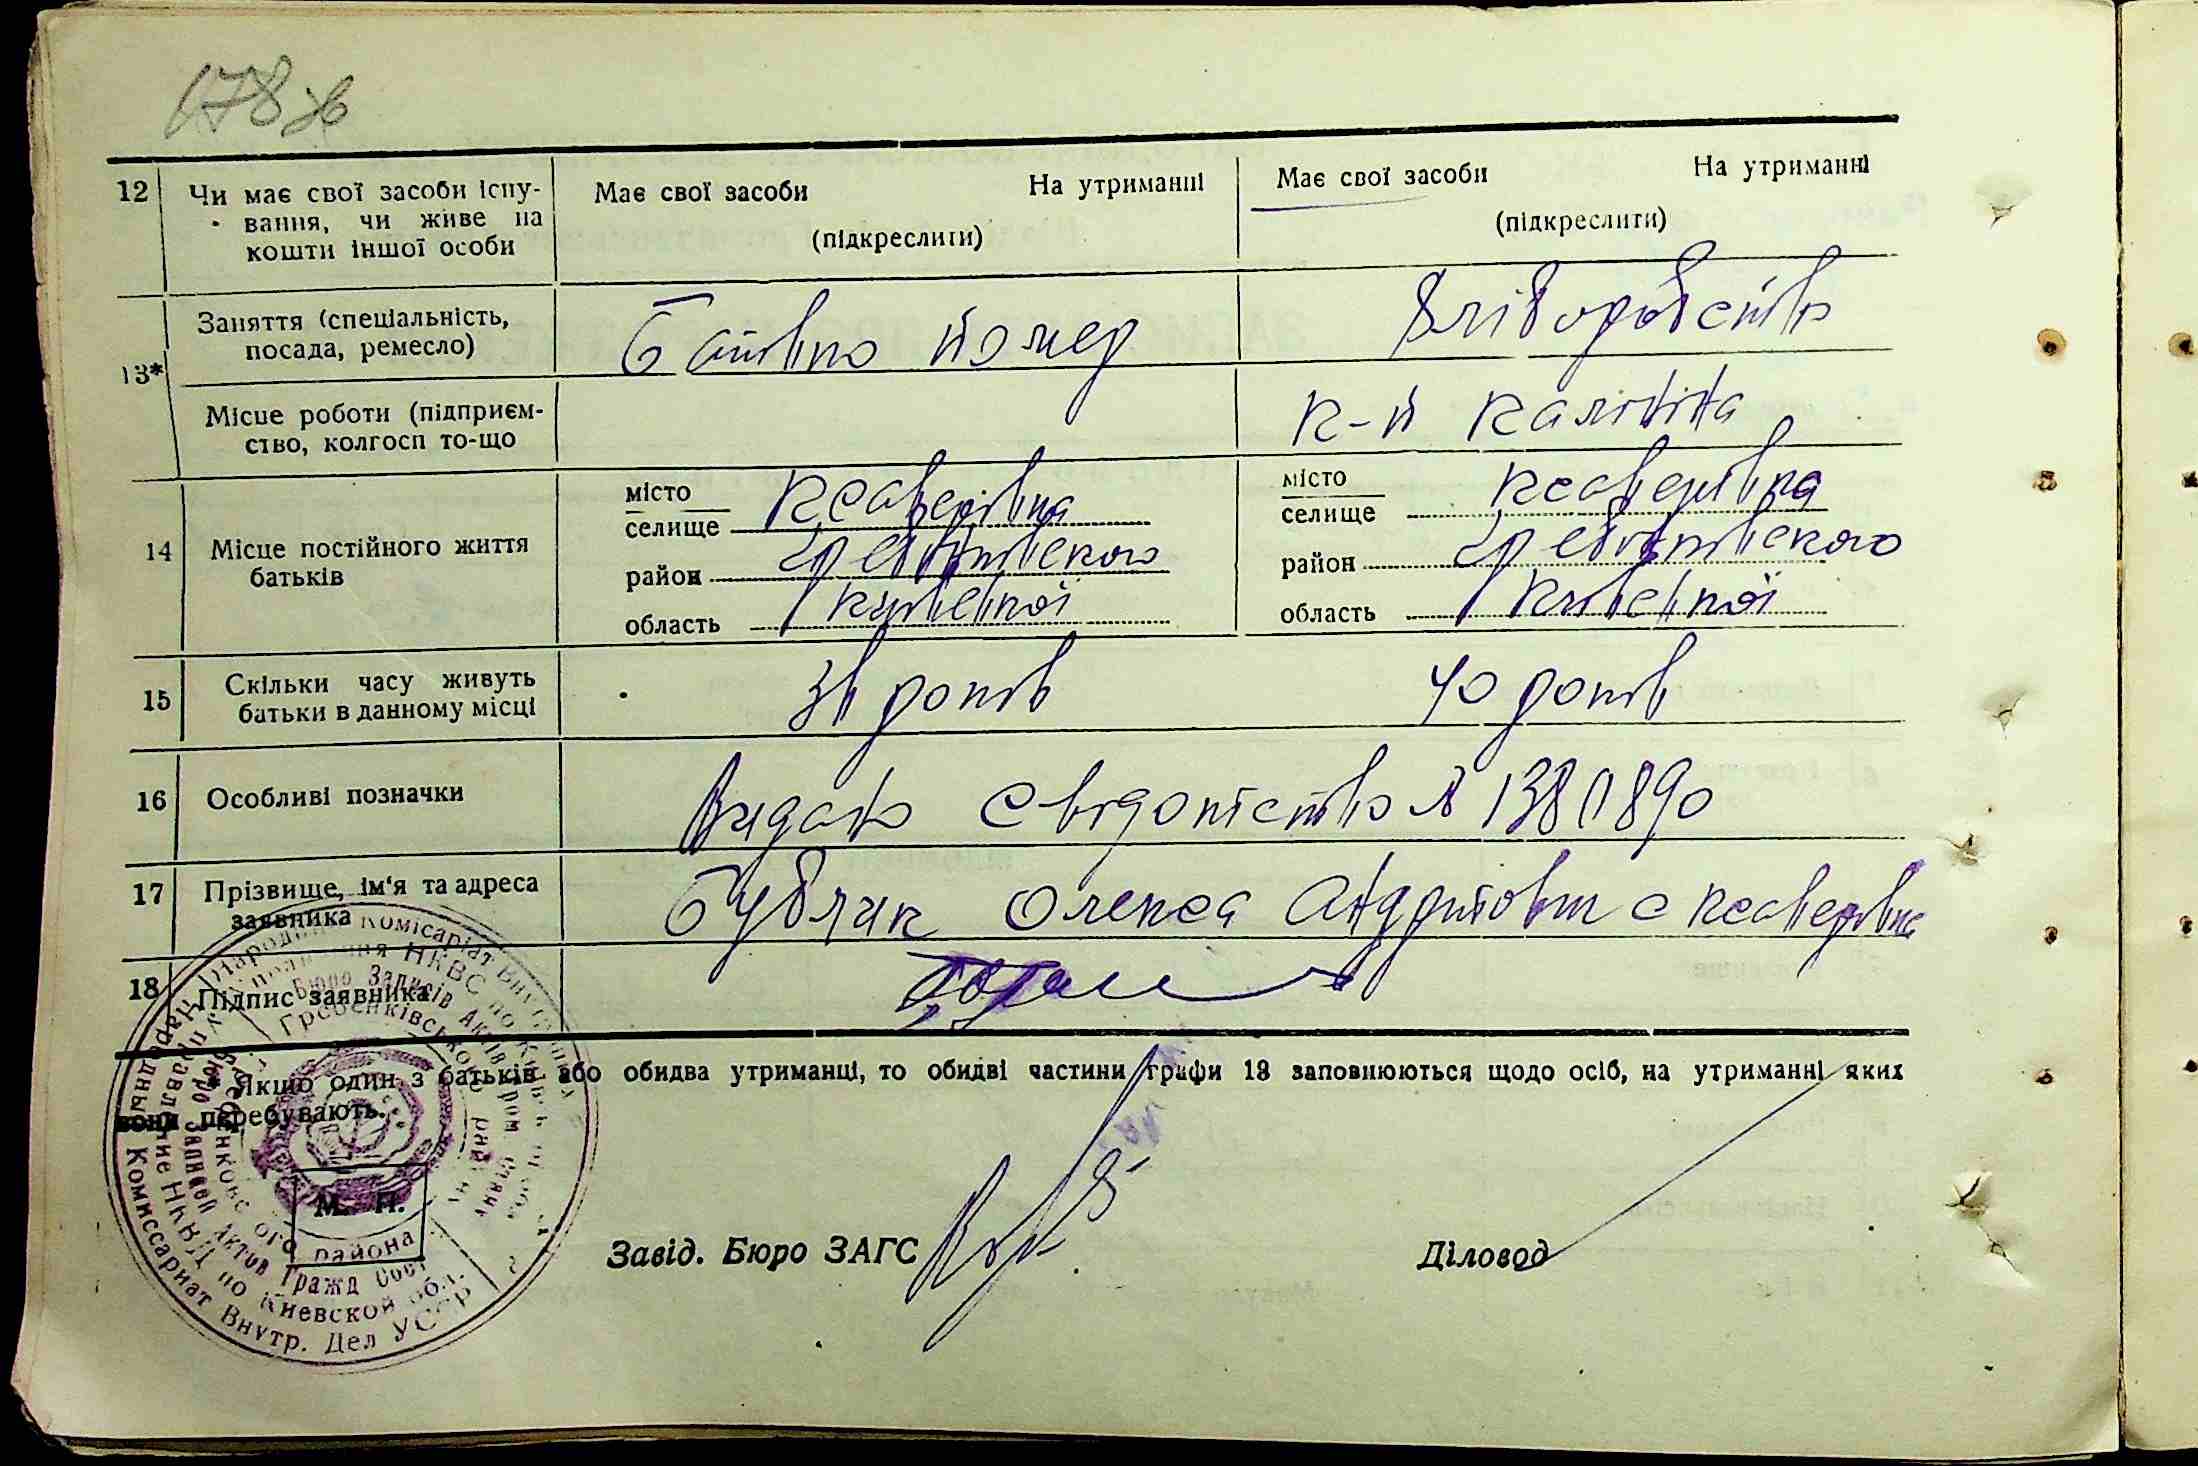 178 ж
12 Чи має свої засоби існу-
вання, чи живе на
кошти іншої особи
Має свої засоби На утриманні
(підкреслити)
Має свої засоби На утриманні
(підкреслити)
13*
Заняття (спеціальність,
посада, ремесло)
Батько помер
Хліборобство
Місце роботи (підприєм-
ство, колгосп то-що
к-п Калініна
14 Місце постійного життя
батьків
місто
селище Ксаверівка
район Гребінківського
область Київської
місто
селище Ксаверівка
район Гребінківського
область Київської
15 Скільки часу живуть
батьки в данному місці
років
40 років
16 Особливі позначки
Видано свідоцтво № 1380890
17 Прізвище, ім'я та адреса
заявника
Бублик Олекса Андрійович с Ксаверівка
18 Підпис заявника
* Якщо один з батьків або обидва утриманці, то обидві частини графи 13 заповнюються щодо осіб, на утриманні яких
вони перебувають.
М. П.
Завід. Бюро ЗАГС
Діловод
Народний Комісаріат Внутр
НКВС по Київськ
Бюро Записів Актів Гром. стану
Гребенківського району
района
Бюро Записей Актов Гражд Сост
Управление НКВД по Киевской обл.
Народный Комиссариат Внутр. Дел УССР